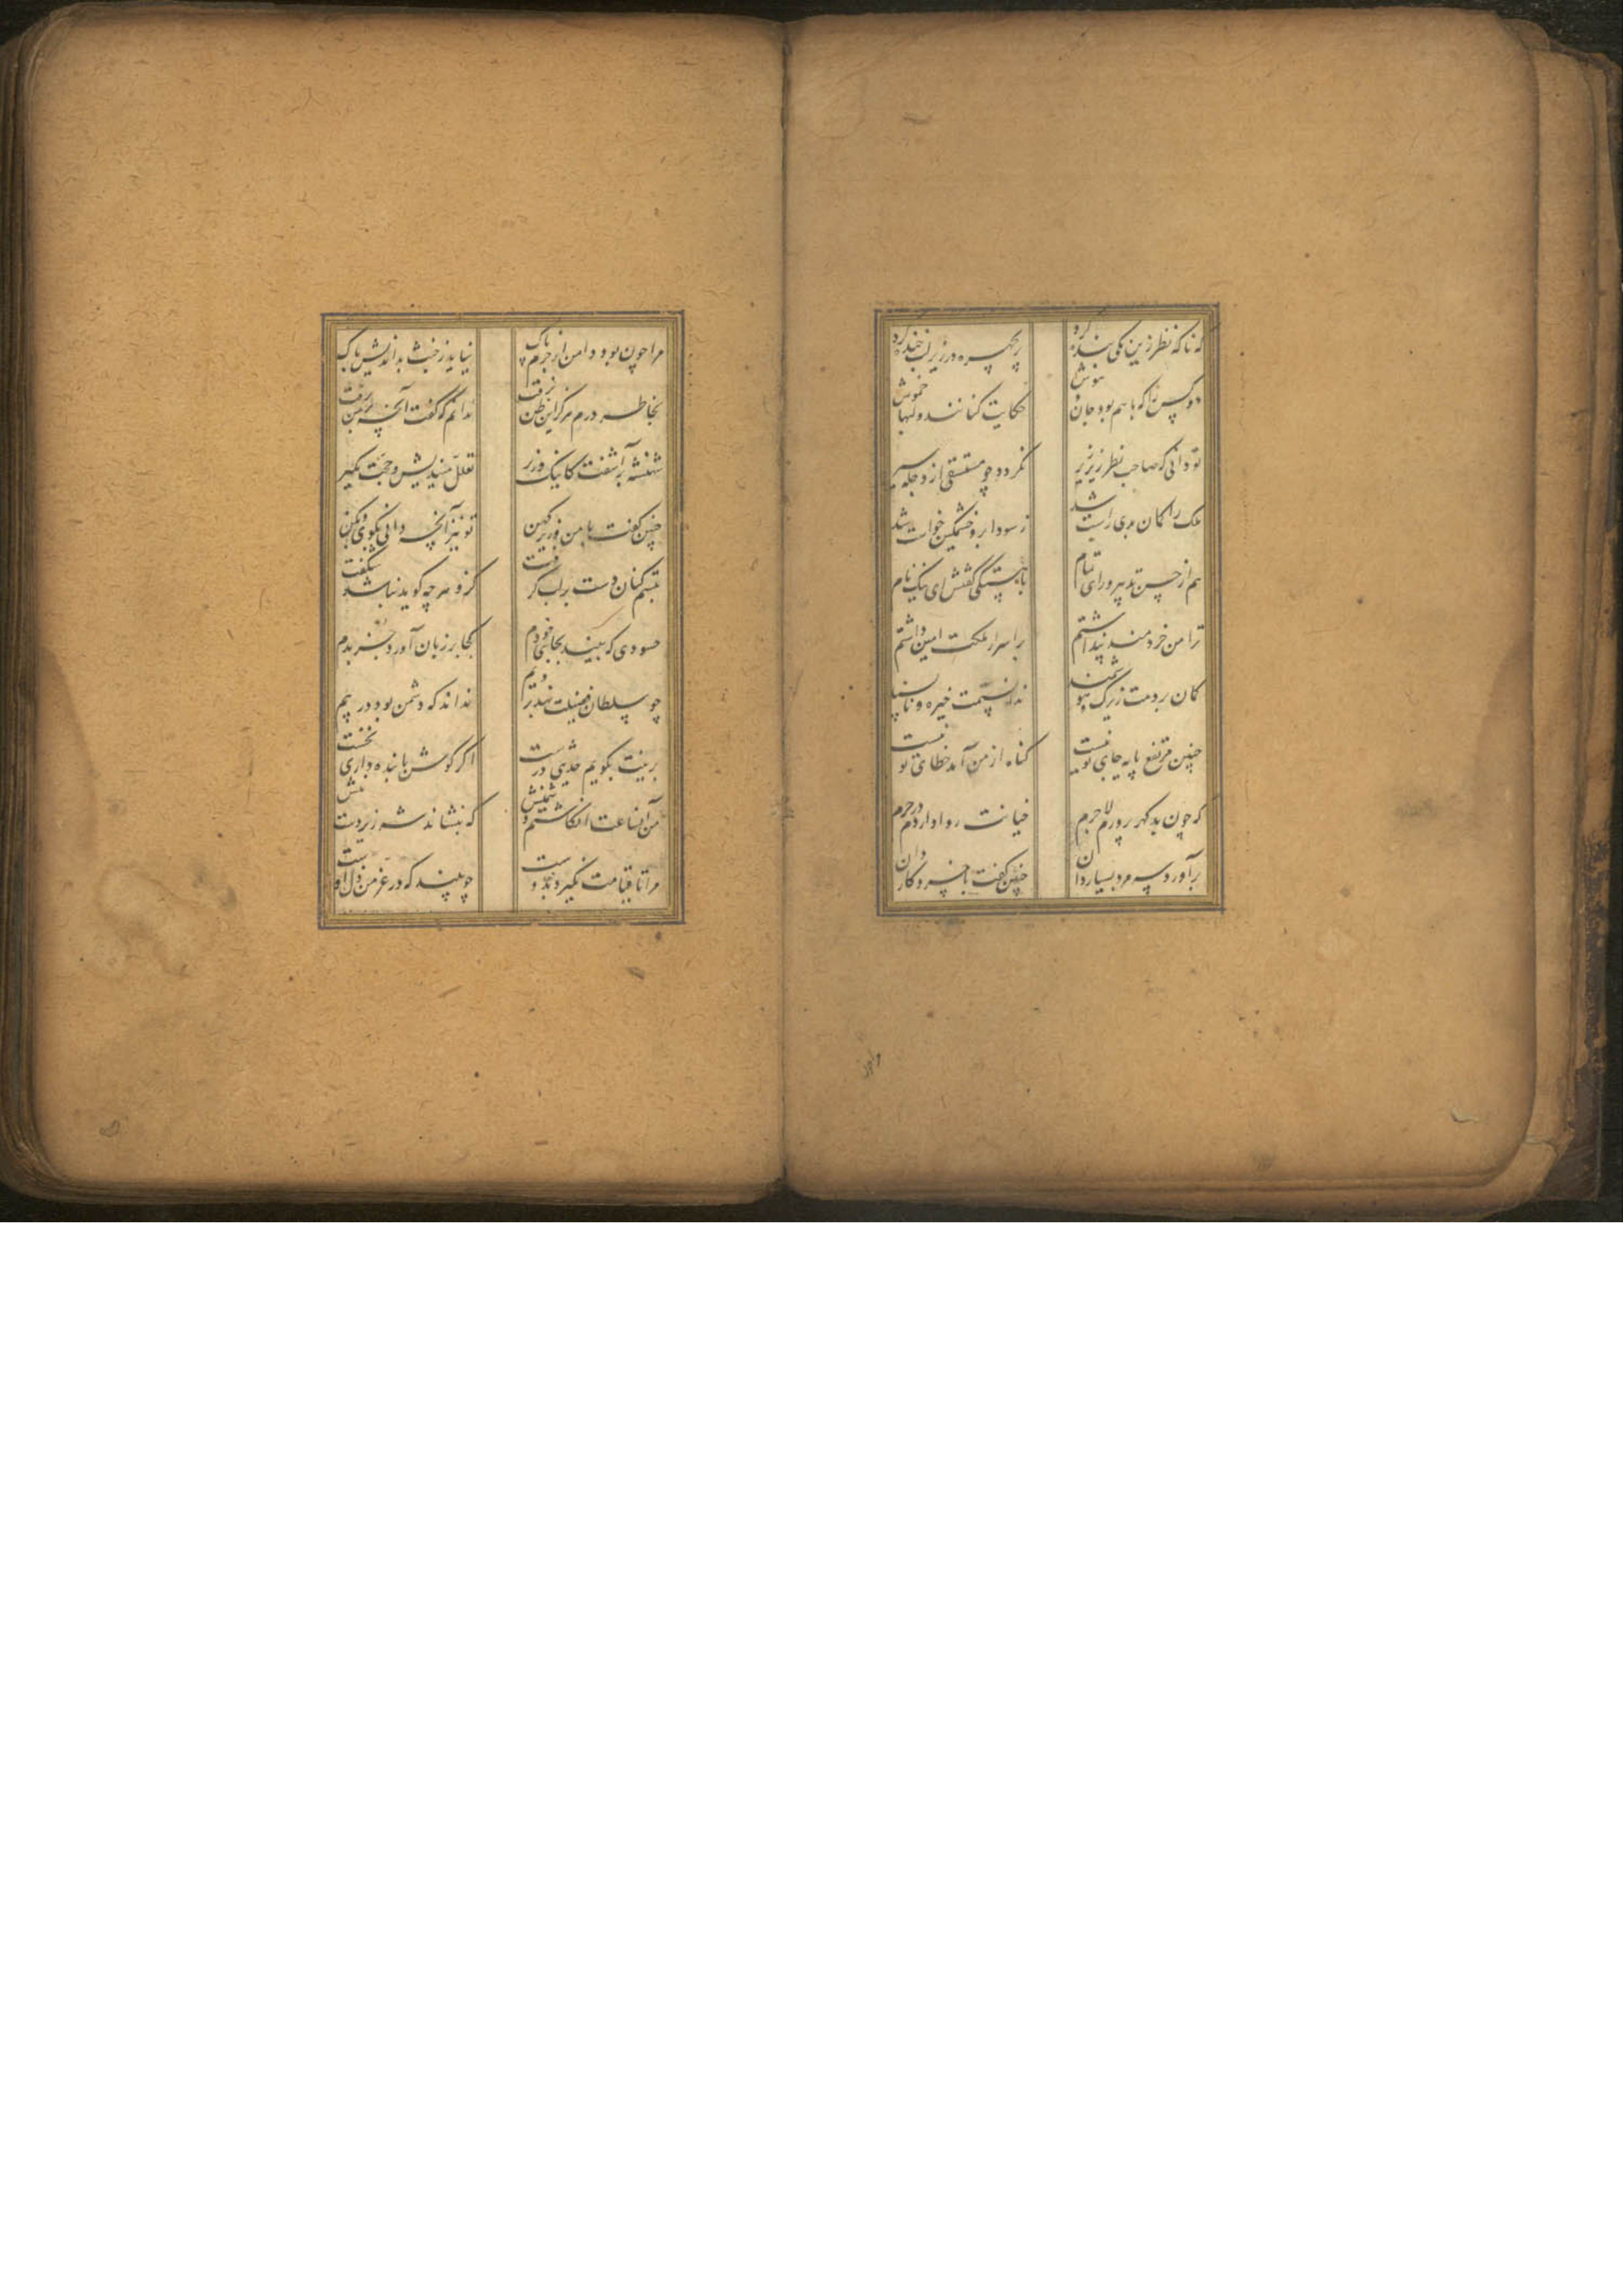 که ناگه نظر زین یکی بنده کرد
پریچهره در زیر لب خنده کرد
دو کس را که با هم بود جان و هوش
حکایت کنانند و لبها خموش
تو دانی که صاحب نظر زیر زیر
نگردد چو مستسقی از دجله سیر
ملک را گمان بدی راست شد
ز سودا برو خشمگین خواست شد
هم از حسن تدبیر و رای تمام
بآهستگی گفتش ای نیک نام
ترا من خردمند پنداشتم
بر اسرار ملکت امین داشتم
گمان بردمت زیرک و هوشمند
ندانستمت خیره و ناپسند
چنین مرتفع پایه جای تو نیست
گناه از من آمد خطای تو نیست
که چون بدگهر پرورم لاجرم
خیانت روا داردم در حرم
برآورد سر مرد بسیاردان
چنین گفت با خسرو کاردان
مرا چون بود دامن از جرم پاک
نیاید ز خبث بداندیش باک
بخاطر درم هرگز این ظن نرفت
ندانم که گفت آنچه بر من برفت
شهنشه برآشفت کانیک وزیر
تعلل میندیش و حجت مگیر
چنین گفت با من وزیر کهن
تو نیز آنچه دانی بگوی و بکن
تبسم کنان دست بر لب گرفت
کزو هرچه گوید نباشد شگفت
حسودی که بیند بجای خودم
کجا بر زبان آورد جز بدم
چو سلطان فضیلت نهد بر ویم
نداند که دشمن بود در پیم
برینت بگویم حدیثی درست
اگر گوش با بنده داری نخست
من آن ساعت انگاشتم دشمنش
که بنشاند شه زیردست منش
مرا تا قیامت نگیرد بدوست
چو بیند که در عز من ذل اوست